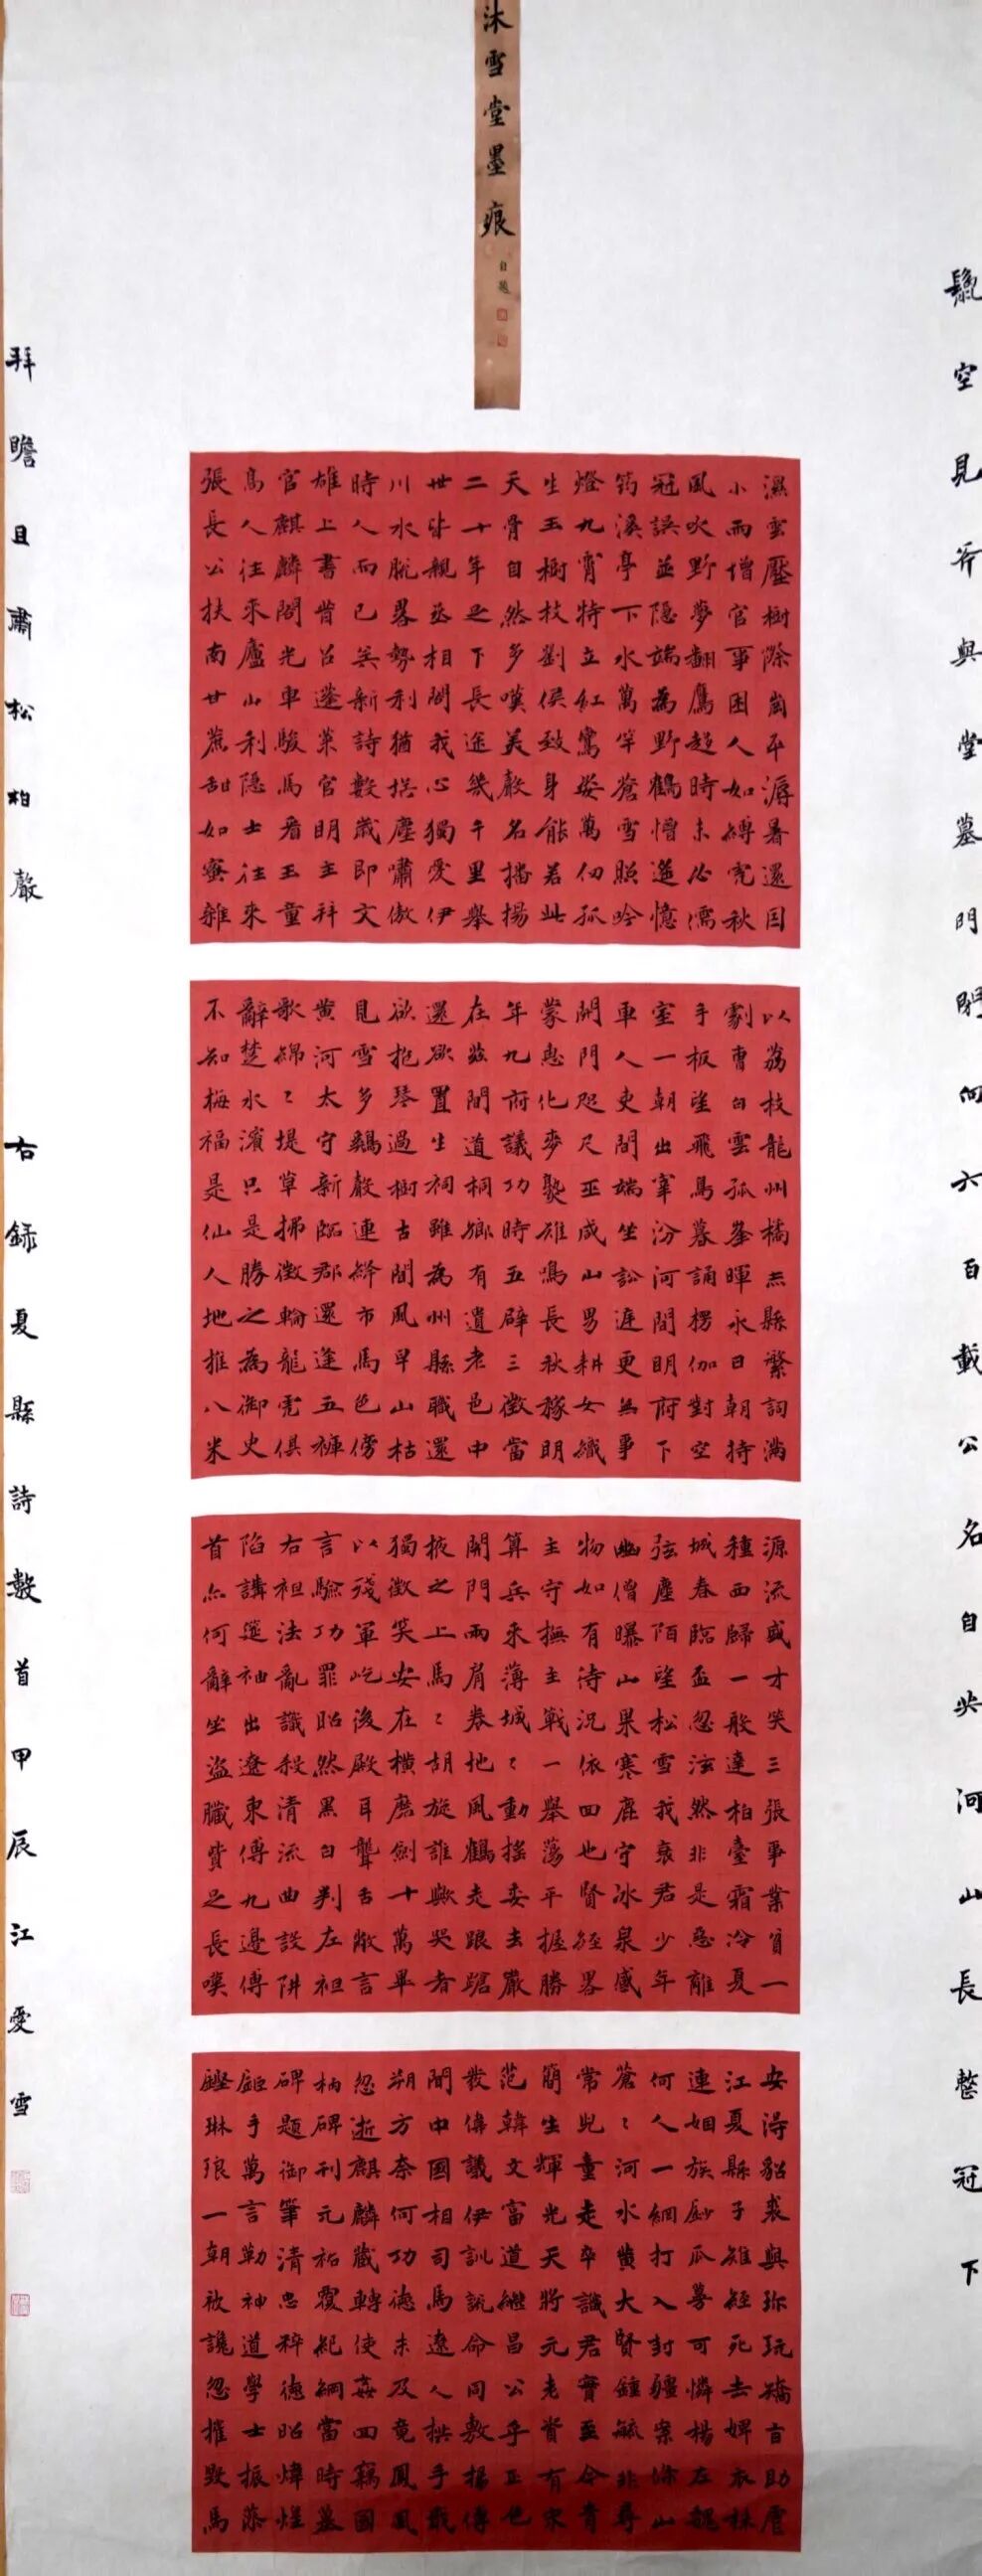 沐雪堂墨痕
自題
濕雲壓樹際崗平溽暑還因
小雨增官事困人如縛虎秋
風吹野夢翻鷹超時未必儒
冠誤並隱端為野鶴憎遙憶
筠溪亭下水萬竿蒼雪照吟
燈九霄特立紅鸞姿萬仞孤
生玉樹枝劉侯致身能若此
天骨自然多嘆美嚴名播揚
二十年之下長途幾千里舉
世皆親丞相問我心獨愛伊
川水脫畧勢利猶塵嘯傲
時人而已矣新詩數歲即文
雄上書皆召蓬萊官明主拜
官麒麟閣光車駿馬看玉童
鳥人往來廬山利隱士往來
張長公扶南廿蔗甜如蜜雜
以荔枝龍州橘亦縣繁詞滿
劇曹白雲孤峯暉永日朝持
手板望飛鳥暮誦楞伽對空
室一朝出宰汾河間明府下
車人吏間端坐訟遲更無事
開門咫尺巫咸山男耕女織
蒙惠化麥雉鳴長秋稼明
年九府議功時五辟三徵當
在茲間道桐鄉有遺老邑中
還欲置生祠雖為州縣職還
欲抱琴過樹古間風早山枯
見雪多鷄聲連市馬色傍
黃河太守新臨郡還逢五褲
歌綿〻堤草拂徵輪龍虎俱
辭楚水濱只是勝之為御史
不知梅福是仙人地推八米
源流盛才笑三張事業貧一
種西歸一般達柏臺霜冷夏
城春臨盃忽泫然非是惡離
弦塵陌望松雪我衰君少年
幽僧曝山果寒鹿守冰泉感
物如有待況依回也賢經畧
主守撫主戰一舉蕩平握勝
算兵來薄城〻動搖委去嚴
開門兩肩卷地風鶴走踉蹌
掖之上馬〻胡旋誰歟哭者
獨徵笑安在橫磨劍十萬畢
以殘軍屹後殿耳聾舌敝言
言驗功罪昭然黑白判左袒
右袒法亂識殺清流曲設阱
陷講筵袖出遼東傳九邊傳
首亦何辭坐盜贓貲足長嘆
安得貂裘與珎玩矯首助脣
江夏縣子雉經死去婢衣妹
連姻族鈔瓜蔓可憐楊左魏
何人一網打入封疆案條山
蒼〻河水黃大賢鐘毓非尋
常兒童走卒識君實至今青
簡生輝光天將元老賚有宋
范韓文富道繼昌公乎正色
裁偉議伊訓說命同敷揚傳
聞中國相司馬遼人拱手戢
朔方奈何功德未及竟鳳凰
忽逝麒麟藏轉使姦回竊國
柄碑刊元祐覆紀綱當時墓
碑題御筆清忠粹德昭煒煌
鉅手萬言勒神道學士振藻
鏗琳琅一朝被讒忽摧毀馬
鬣空見斧與堂墓門閟何六百載公名自共河山長整冠下
拜瞻且肅松柏聲
右錄夏縣詩數首甲辰江愛雪